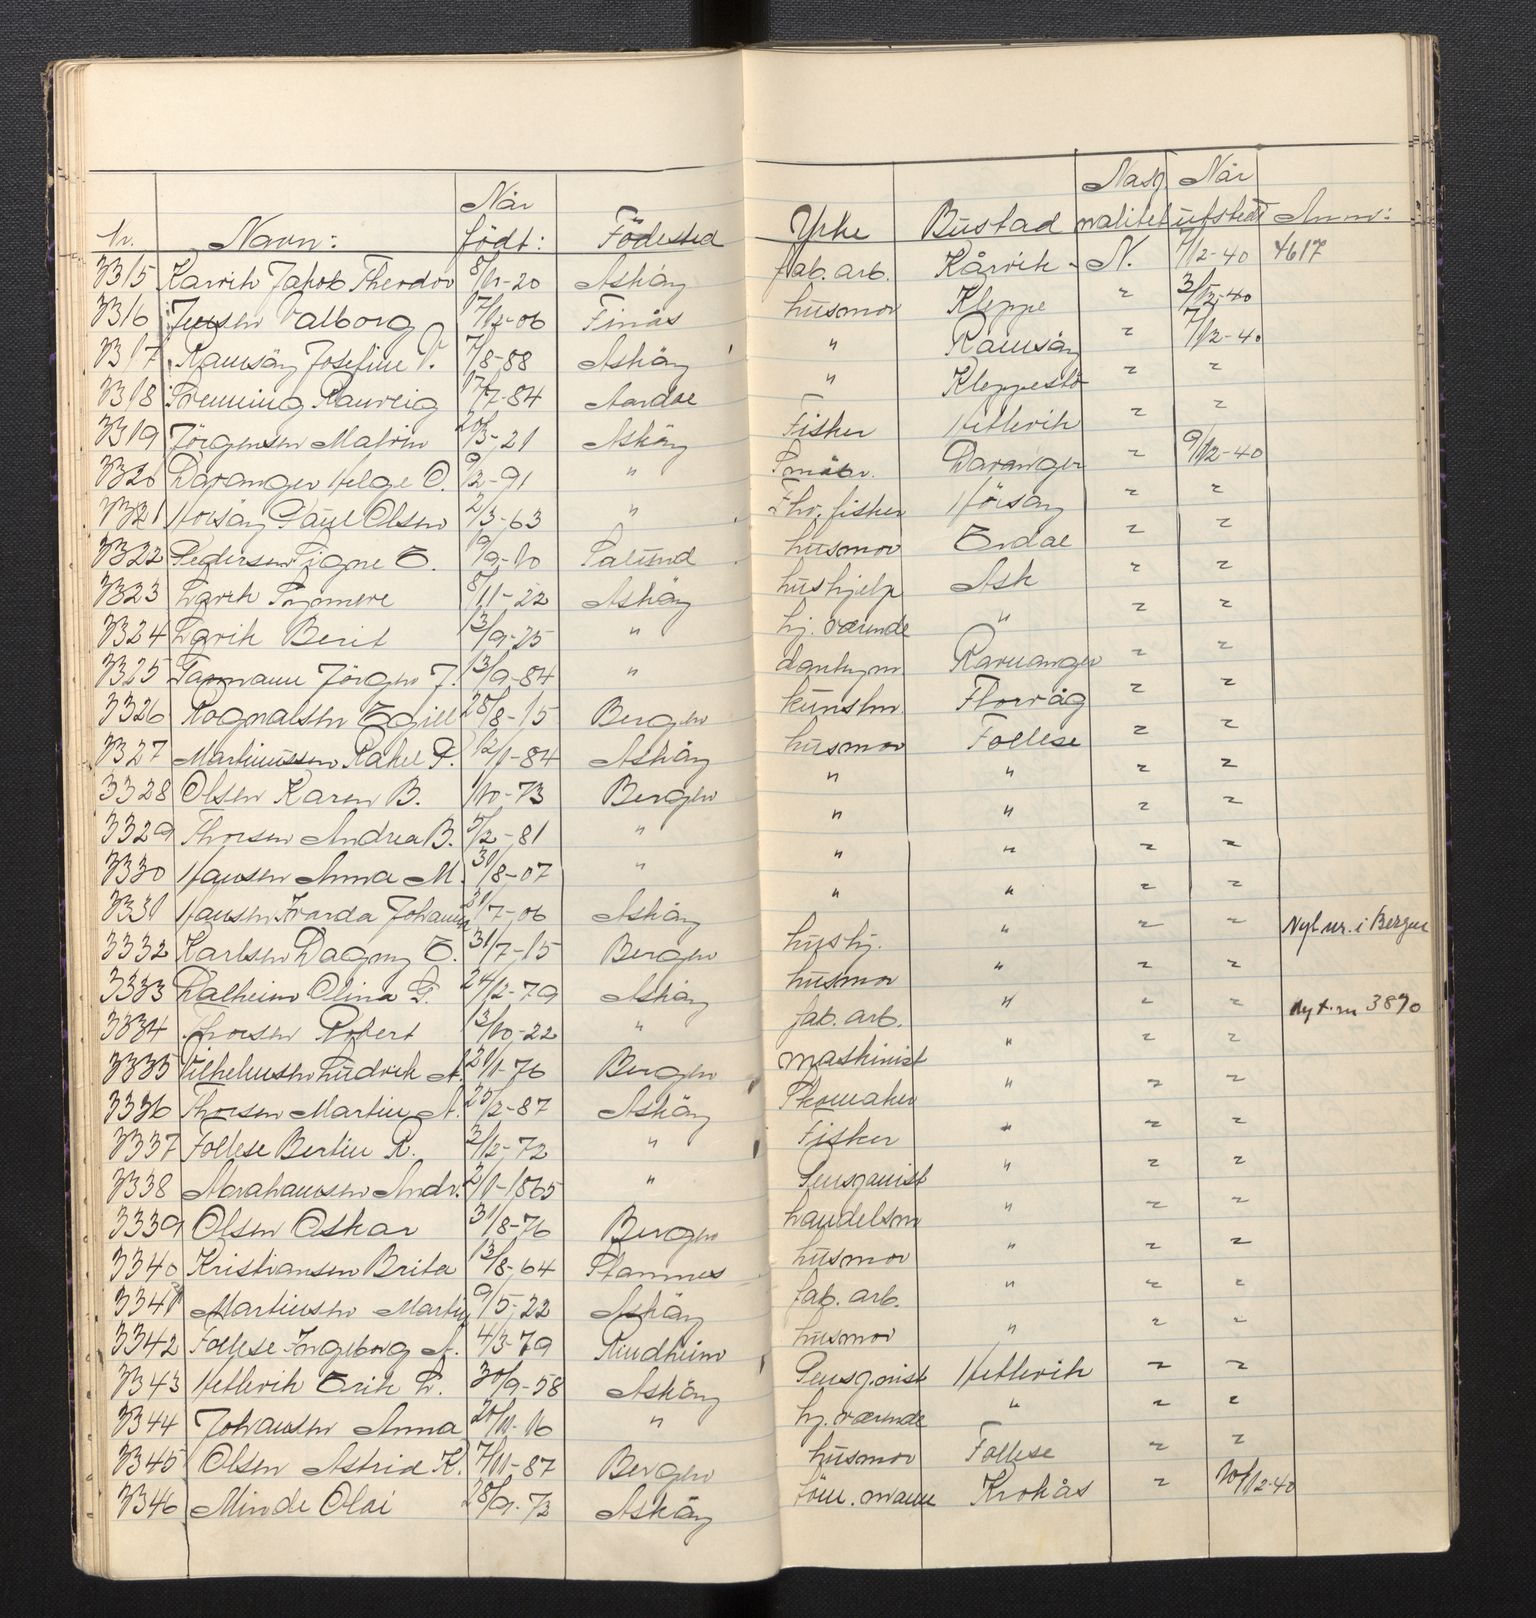 Nr. Navn: Når födt: Födested Yrke Bustad Nasj nalitet Når utstedt Anm:
3315 Karvik Jakob Theodor 8/11-20 Askøy fab. arb. Kårvik N. 7/12-40 4617
3316 Jensen Valborg 17/12-06 Finås husmor Kleppe " 3/12-40
3317 Ramsøy Josefine V. 7/8-88 Askøy " Ramsøy " 7/12-40
3318 Ranveig 17/7-84 Aardal " Kleppestö " "
3319 Jörgensen Malvin 20/3-21 Askøy Fisker Hetlevik " "
3320 Davanger Helge O. 9/2-91 " Småbr. Davanger " 9/12-40
3321 Horsøy Paul Olsen 2/3-63 " Fhv. fisker Horsøy " "
3322 Pedersen Signe E. 19/9-10 Salund husmor Erdal " "
3323 Lavik Synnøve 8/11-22 Askøy hushjelp Ask " "
3324 Lavik Berit 13/9-25 " hj. værende " " "
3325 Jörgen J. 13/9-84 " Ravnanger " "
3326 Rognalsen Egill 28/8-15 Bergen kunstm. Florvåg " "
3327 Martinussen Rakel P. 12/1-84 Askøy husmor Follese " "
3328 Olsen Karen B. 1/10-73 Bergen " " " "
3329 Thorsen Andrea B. 5/2-81 " " " " "
3330 Hansen Anna M. 30/8-07 " " " " "
3331 Hansen Johanna 21/7-06 Askøy " " " "
3332 Karlsen Dagny E. 31/7-15 Bergen hushj. " " " Nyt nr. i Bergen
3333 Dalheim Olina L. 24/12-79 Askøy husmor " " "
3334 Thorsen Robert 13/10-22 " fab. arb. " " " Nyt. nr 3870
3335 Vilhelmsen Ludvik A. 21/1-76 Bergen maskinist " " "
3336 Thorsen Martin A. 25/2-87 Askøy Skomaker " " "
3337 Follese Bertin R. 2/12-72 " Fisker " " "
3338 Abrahamsen Andr. 2/1-1865 " Pensjonist " " "
3339 Olsen Oskar 31/8-76 Bergen handelsm " " "
3340 Kristiansen Brita 13/8-64 Stamnes husmor " " "
3341 Martinsen Martin 9/5-22 Askøy fab. arb. " " "
3342 Follese Ingeborg A. 4/3-79 Rundheim husmor " " "
3343 Hetlevik Erik L. 30/9-58 Askøy Pensjonist Hetlevik " "
3344 Johansen Anna 20/11-16 " hj. værende " " "
3345 Olsen Astrid K. 7/11-87 Bergen husmor Follese " "
3346 Minde Olai 28/9-73 Askøy töm. mann Krokås " 10/12-40